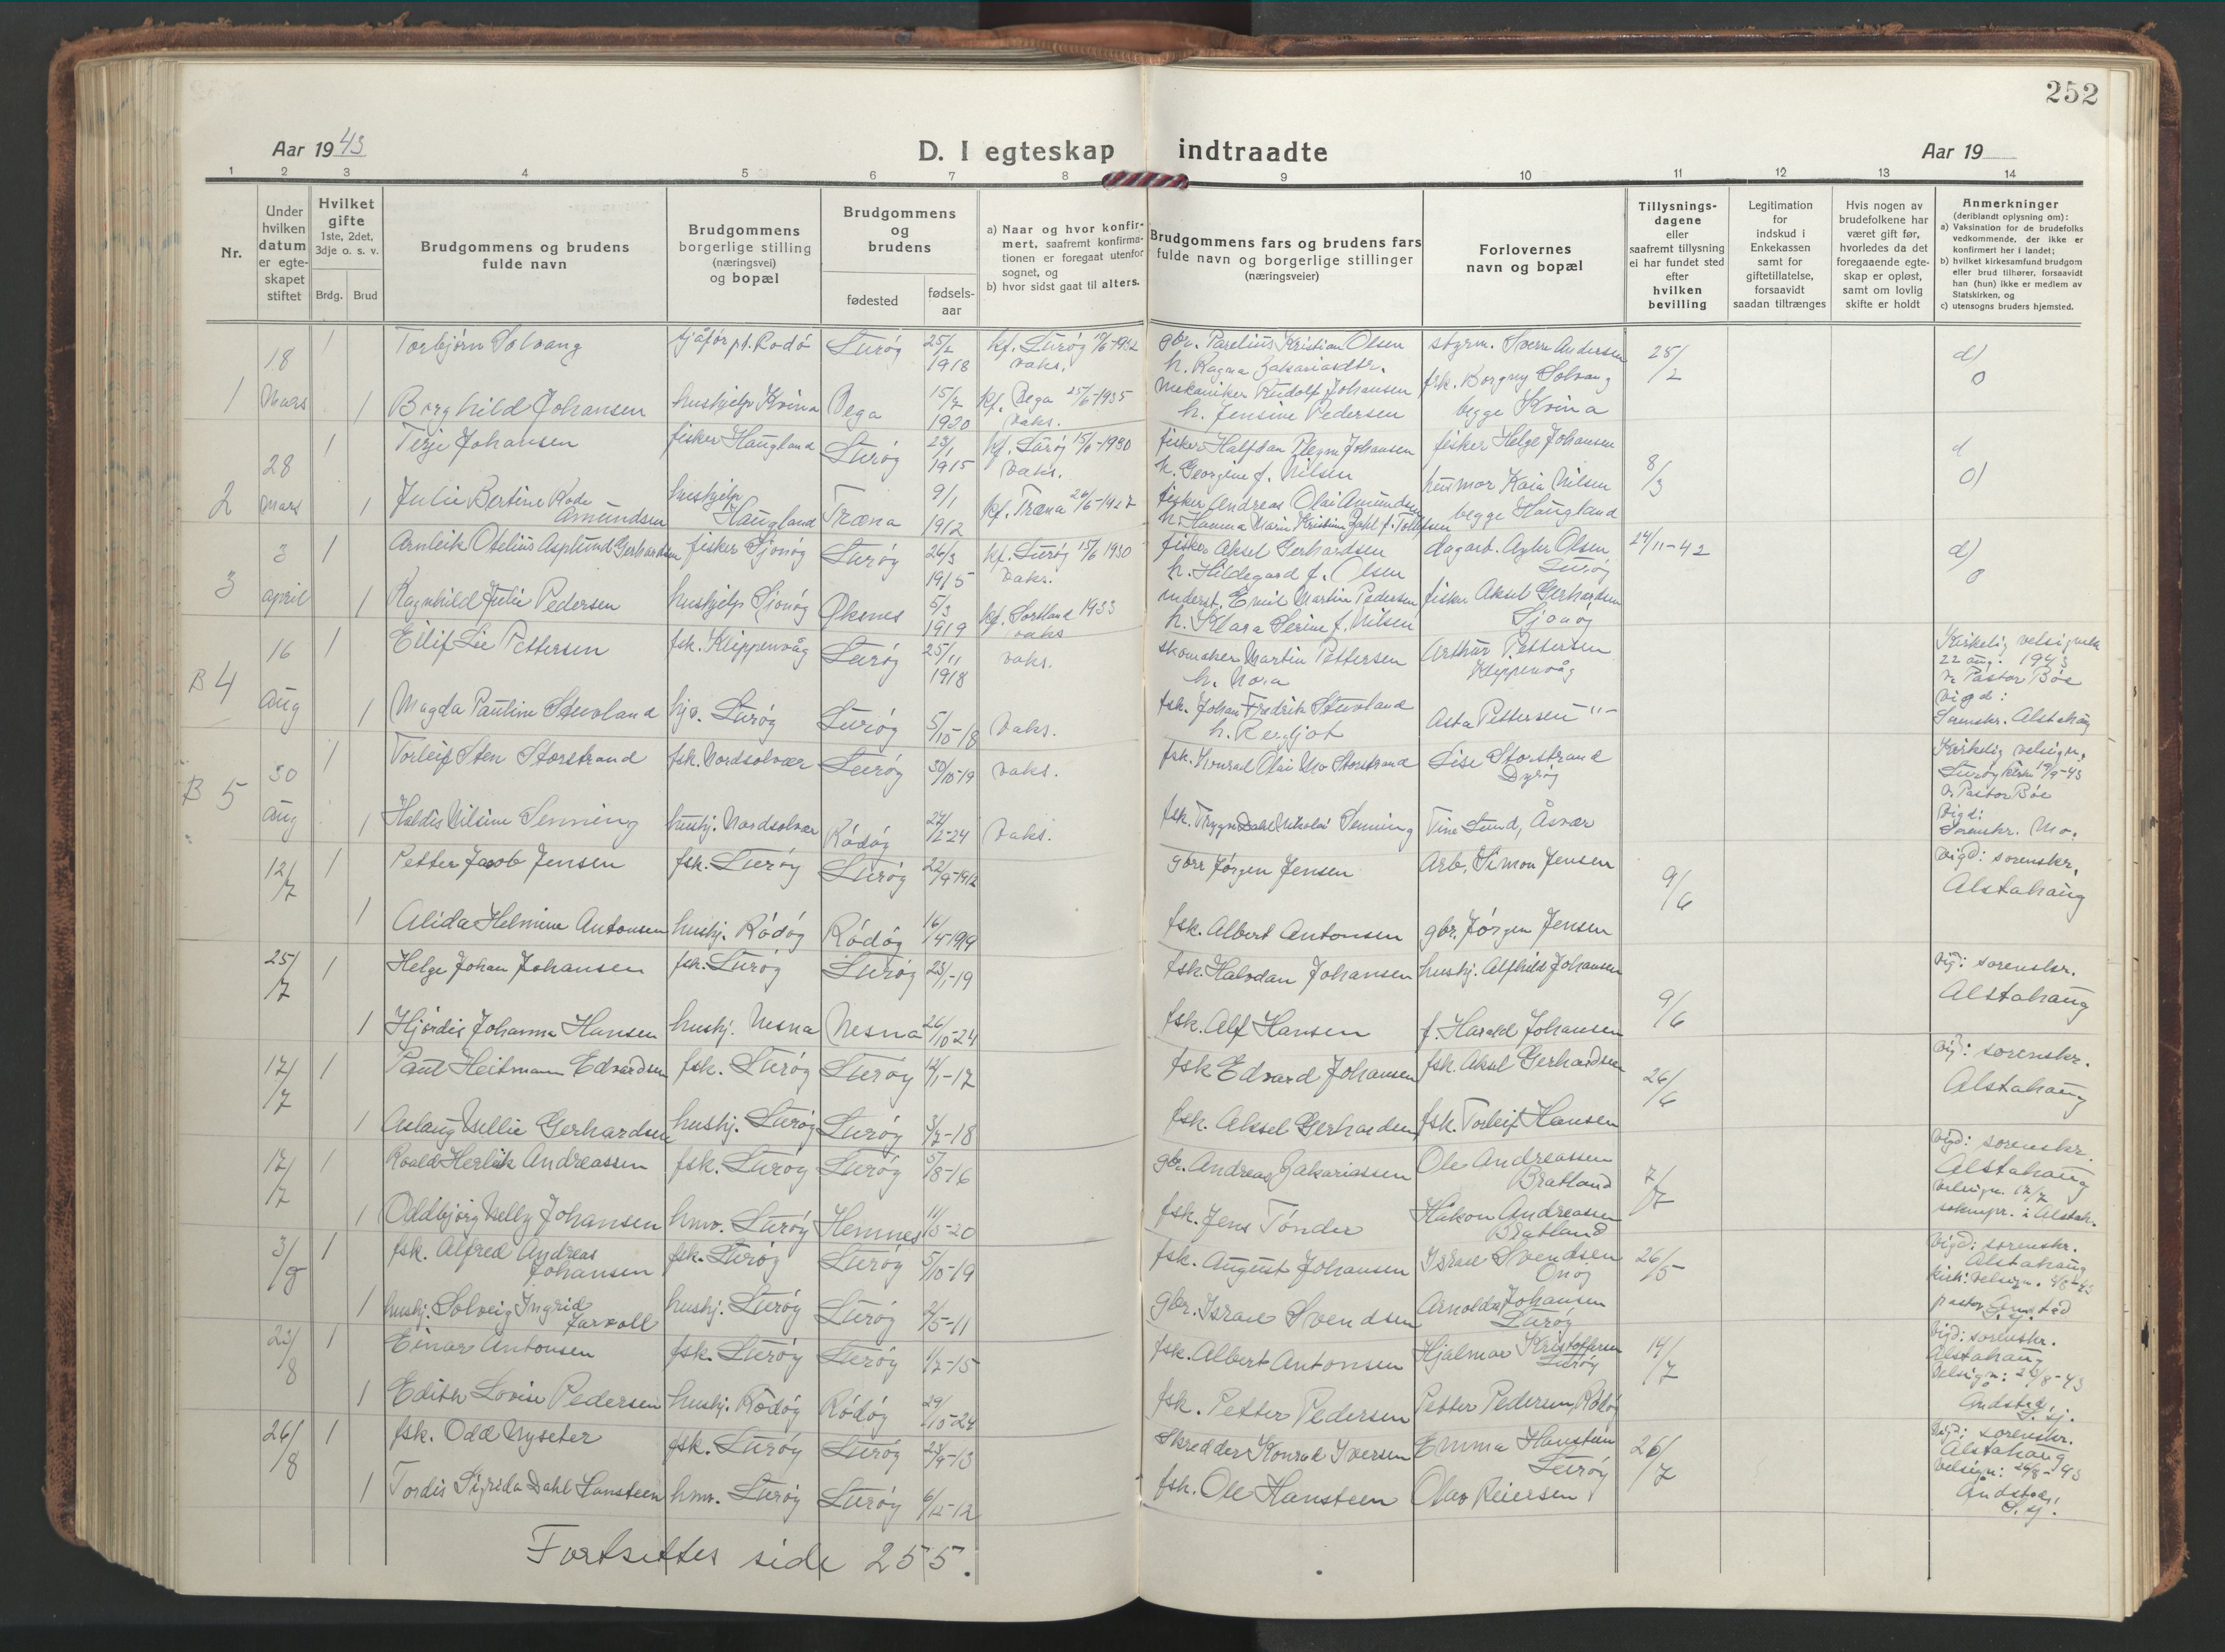 252
Aar 1943
D. I egteskap indtraadte
Aar 19
1 2 3 4 5 6 7 8 9 10 11 12 13 14
Nr.
Under hvilken datum er egteskapet stiftet
Hvilket gifte 1ste, 2det, 3dje o. s. v.
Brdg. Brud
Brudgommens og brudens fulde navn
Brudgommens borgerlige stilling (næringsvei) og bopæl
Brudgommens og brudens
fødested
fødsels-aar
a) Naar og hvor konfir-
mert, saafremt konfirma-
tionen er foregaat utenfor
sognet, og
b) hvor sidst gaat til alters.
Brudgommens fars og brudens fars
fulde navn og borgerlige stillinger
(næringsveier)
Forlovernes
navn og bopæl
Tillysnings-
dagene
eller
saafremt tillysning
ei har fundet sted
efter
hvilken
bevilling
Legitimation
for
indskud i
Enkekassen
samt for
giftetillatelse,
forsaavidt
saadan tiltrænges
Hvis nogen av
brudefolkene har
været gift før,
hvorledes da det
foregaaende egte-
skap er opløst,
samt om lovlig
skifte er holdt
Anmerkninger
(deriblandt oplysning om):
a) Vaksination for de brudefolks
vedkommende, der ikke er
konfirmert her i landet;
b) hvilket kirkesamfund brudgom
eller brud tilhører, forsaavidt
han (hun) ikke er medlem av
Statskirken, og
c) utensogns bruders hjemsted.
1 18 Mars
1 Torbjørn Solvang sjåfør pt. Rodö Lurøy 25/2 1918 kf. Lurøy vaks. gbr. Parelius Kristian Olsen h. Ragna Zakariasdtr. styrm. Sverre Andersen 25/2 d)
1 Borghild Johansen hushjelp Kvina Vega 15/7 1920 kf. Vega 25/6-1935 vaks. Mekaniker Rudolf Johansen h. Jensine Pedersen frk. Borgny Solvang begge Kvina
2 28 Mars
1 Terje Johansen fisker Haugland Lurøy 23/1 1915 kf. Lurøy 15/6-1930 vaks. fisker Halfdan Johansen h. Georgine f. Nilsen fisker Helge Johansen 8/3
1 Julie Bertine Amundsen hushjelp Haugland Træna 9/1 1912 kf. Træna 26/6-1927 fisker Andreas Olai Amundsen husmor Kaia Nilsen begge Haugland
3 3 april
1 Arnleik Otelius Asplund Gerhardsen fisker Sjonøy Lurøy 26/3 1915 kf. Lurøy 15/6 1930 vaks. fisker Aksel Gerhardsen h. Hildegard f. Olsen dagarb. Olsen Lurøy 24/11-42 d)
1 Ragnhild Julie Pedersen hushjelp Sjonøy Øksnes 5/3 1919 kf. Sortland 1933 vaks Emil Martin Pedersen h. Klara Serine f. Nilsen fisker Aksel Gerhardsen Sjonøy
B 4 16 Aug
1 Eilif Lie Pettersen fsk. Kleppenvåg Lurøy 25/11 1918 vaks. skomaker Martin Pettersen h. Nora Arthur Pettersen Kleppenvåg
1 Magda Pauline Stuvland hjv. Lurøy Lurøy 5/10-18 Vaks. fsk. Johan Fredrik Stuvland h. Bergljot Asta Pettersen -"-
Kirkelig velsignelse
22 aug. 1943
v. Pastor Böe
Vigd:
Sorenskr. Alstahaug
B 5 30 Aug
1 Torleif Sten Storstrand fsk. Nordsolvær Lurøy 30/10-19 vaks. fsk. Konrad Olai Storstrand Lise Storstrand Dyrøy
1 Haldis Nilsine Senning hushj. Nordsolvær Rödöy 27/2-24 Vaks. fsk. Trygve Dahl Nikolai Senning Tine Lund, Åsvær
Kirkelig velsign.
Lurøy kirke 19/9-43
v. Pastor Böe
Vigd:
Sorenskr. Mo.
12/7 1 Petter Jacob Jensen fsk. Lurøy Lurøy 22/9-1912 gbr Jørgen Jensen Arb. Simon Jensen 9/6 Vigd: sorenskr. Alstahaug
1 Alida Helmine Antonsen hushj. Rödöy Rödöy 16/4 1919 fsk. Albert Antonsen gbr. Jørgen Jensen
25/7 1 Helge Johan Johansen fsk. Lurøy Lurøy 23/1-19 fsk. Halvdan Johansen hushj. Alfhild Johansen 9/6 Vigd: sorenskr. Alstahaug
1 Hjördis Johanna Hansen hushj. Nesna Nesna 26/10-24 fsk. Alf Hansen f. Harald Johansen
17/7 1 Paul Heitmann Edvardsen fsk. Lurøy Lurøy 12/1-17 fsk Edvard Johansen fsk. Aksel Gerhardsen 26/6 Vigd: sorenskr. Alstahaug
1 Aslaug Nellie Gerhardsen hushj. Lurøy Lurøy 3/7-18 fsk. Aksel Gerhardsen fsk. Torleif Hansen
17/7 1 Roald Andreassen fsk. Lurøy Lurøy 5/8-16 gbr. Andreas Zakariassen Ole Andreassen Bratland 7/7 Vigd: sorenskr. Alstahaug Velsign. 17/7 sokmpr. i Alstah.
1 Oddbjørg Nelly Johansen hmv. Lurøy Hemnes 11/5-20 fsk. Jens Tønder Håkon Andreassen Bratland
3/8 1 fsk. Alfred Andreas Johansen fsk. Lurøy Lurøy 5/10-19 fsk. August Johansen Israel Svendsen Onøy 26/5 Vigd: sorenskr. Alstahaug kirk. velsign.
1 hushj. Solveig Ingrid hushj. Lurøy Lurøy 2/5-11 gbr. Israel Svendsen Arnolda Johansen Lurøy
23/8 1 Einar Antonsen fsk. Lurøy Lurøy 1/7-15 fsk. Albert Antonsen Hjalmar Kristoffersen Lurøy 14/7 Vigd: sorenskr. Alstahaug Velsign: 23/8-43 S. sj.
1 Edith Lovise Pedersen hushj. Rödöy Rödöy 29/10-24 fsk. Petter Pedersen Petter Pedersen, Rödöy
26/8 1 fsk. Odd Nyseter fsk. Lurøy Lurøy 23/4-13 Skredder Konrad Iversen Emma Hansteen Lurøy 26/7 Vigd: sorenskr. Alstahaug Velsign: 26/8-43 S. sj.
1 Tordis Sigrida Dahl Hansteen hmv. Lurøy Lurøy 6/12-12 fsk. Ole Hansteen Olav Reiersen
Fortsettes side 255.